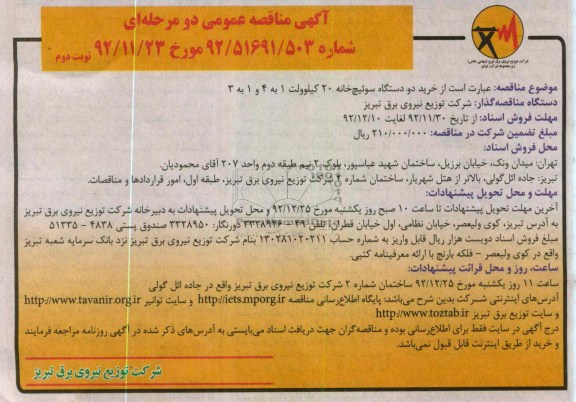 آگهی مناقصه عمومی دو مرحله‌ای
شماره ۹۲/۵۱۶۹۱/۵۰۳ مورخ ۹۲/۱۱/۲۳ نوبت دوم
موضوع مناقصه: عبارت است از خرید دو دستگاه سوئیچ‌خانه ۲۰ کیلوولت ۱ به ۴ و ۱ به ۳
دستگاه مناقصه‌گذار: شرکت توزیع نیروی برق تبریز
مهلت فروش اسناد: از تاریخ ۹۲/۱۱/۳۰ لغایت ۹۲/۱۲/۱۰
مبلغ تضمین شرکت در مناقصه: ۲۱۰/۰۰۰/۰۰۰ ریال
محل فروش اسناد:
تهران: میدان ونک، خیابان برزیل، ساختمان شهید عباسپور، بلوک ۲ نیم طبقه دوم واحد ۲۰۷ آقای محمودیان.
تبریز: جاده ائل‌گولی، بالاتر از هتل شهریار، ساختمان شماره ۲ شرکت توزیع نیروی برق تبریز، طبقه اول، امور قراردادها و مناقصات.
مهلت و محل تحویل پیشنهادات:
آخرین مهلت تحویل پیشنهادات تا ساعت ۱۰ صبح روز یکشنبه مورخ ۹۲/۱۲/۲۵ و محل تحویل پیشنهادات به دبیرخانه شرکت توزیع نیروی برق تبریز
به آدرس تبریز، کوی ولیعصر، خیابان نظامی، اول خیابان قطران تلفن ۴۹ - ۳۳۲۸۹۴۶ دورنگار: ۳۳۲۸۹۵۰ صندوق پستی ۴۸۳۸ - ۵۱۳۳۵
مبلغ فروش اسناد دویست هزار ریال قابل واریز به شماره حساب ۱۳۰۲۸۱۰۲۰۲۱۱ بنام شرکت توزیع نیروی برق تبریز نزد بانک سرمایه شعبه تبریز
واقع در کوی ولیعصر - فلکه بارنج با ارائه معرفینامه کتبی.
ساعت، روز و محل قرائت پیشنهادات:
ساعت ۱۱ روز یکشنبه مورخ ۹۲/۱۲/۲۵ ساختمان شماره ۲ شرکت توزیع نیروی برق تبریز واقع در جاده ائل گولی
آدرس‌های اینترنتی شرکت بدین شرح می‌باشد: پایگاه اطلاع‌رسانی مناقصه http://iets.mporg.ir و سایت توانیر http://www.tavanir.org.ir
و سایت توزیع برق تبریز http://www.toztab.ir
درج آگهی در سایت فقط برای اطلاع‌رسانی بوده و مناقصه‌گران جهت دریافت اسناد می‌بایستی به آدرس‌های ذکر شده در آگهی روزنامه مراجعه فرمایند
و خرید از طریق اینترنت قابل قبول نمی‌باشد.
شرکت توزیع نیروی برق تبریز